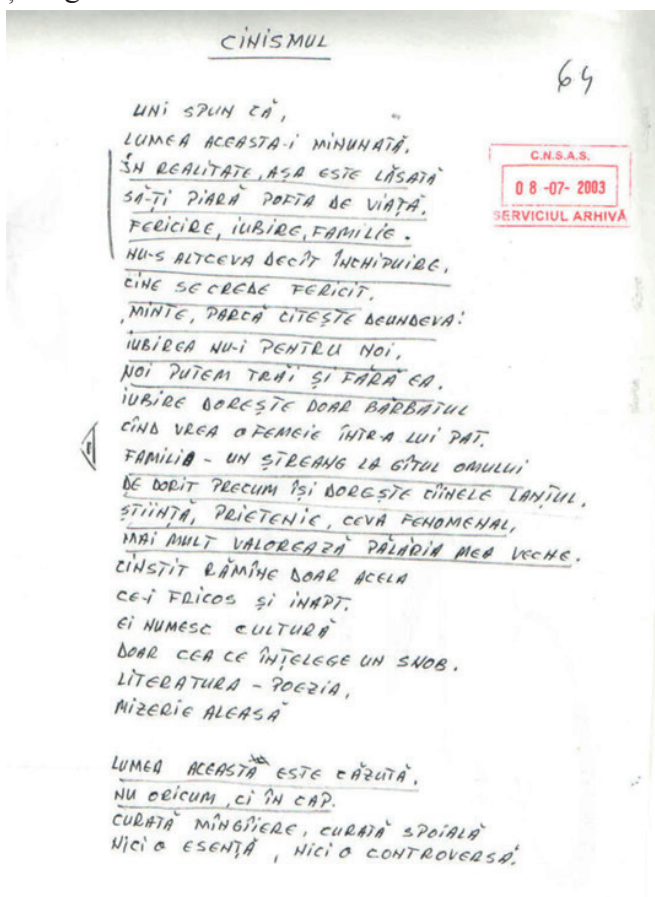 CINISMUL
64
UNI SPUN CĂ,
LUMEA ACEASTA-I MINUNATĂ.
ÎN REALITATE, AȘA ESTE LĂSATĂ
SĂ-ȚI PIARĂ POFTA DE VIAȚĂ.
FERICIRE, IUBIRE, FAMILIE.
NU-S ALTCEVA DECÎT ÎNCHIPUIRE,
CINE SE CREDE FERICIT,
MINTE, PARCĂ CITEȘTE DEUNDEVA:
IUBIREA NU-I PENTRU NOI,
NOI PUTEM TRĂI ȘI FĂRĂ EA.
IUBIRE DOREȘTE DOAR BĂRBATUL
CÎND VREA O FEMEIE ÎNTR-A LUI PAT.
FAMILIA - UN ȘTREANG LA GÎTUL OMULUI
DE DORIT PRECUM ÎȘI DOREȘTE CÎINELE LANȚUL,
ȘTIINȚĂ, PRIETENIE, CEVA FENOMENAL,
MAI MULT VALOREAZĂ PĂLĂRIA MEA VECHE.
CINSTIT RĂMÎNE DOAR ACELA
CE-I FRICOS ȘI INAPT.
EI NUMESC CULTURĂ
DOAR CEA CE ÎNȚELEGE UN SNOB.
LITERATURA - POEZIA,
MIZERIE ALEASĂ
LUMEA ACEASTĂ ESTE CĂZUTĂ.
NU ORICUM, CI ÎN CAP.
CURATĂ MÎNGÎIERE, CURATĂ SPOIALĂ
NICI O ESENȚĂ, NICI O CONTROVERSĂ.
C.N.S.A.S.
08 -07- 2003
SERVICIUL ARHIVĂ